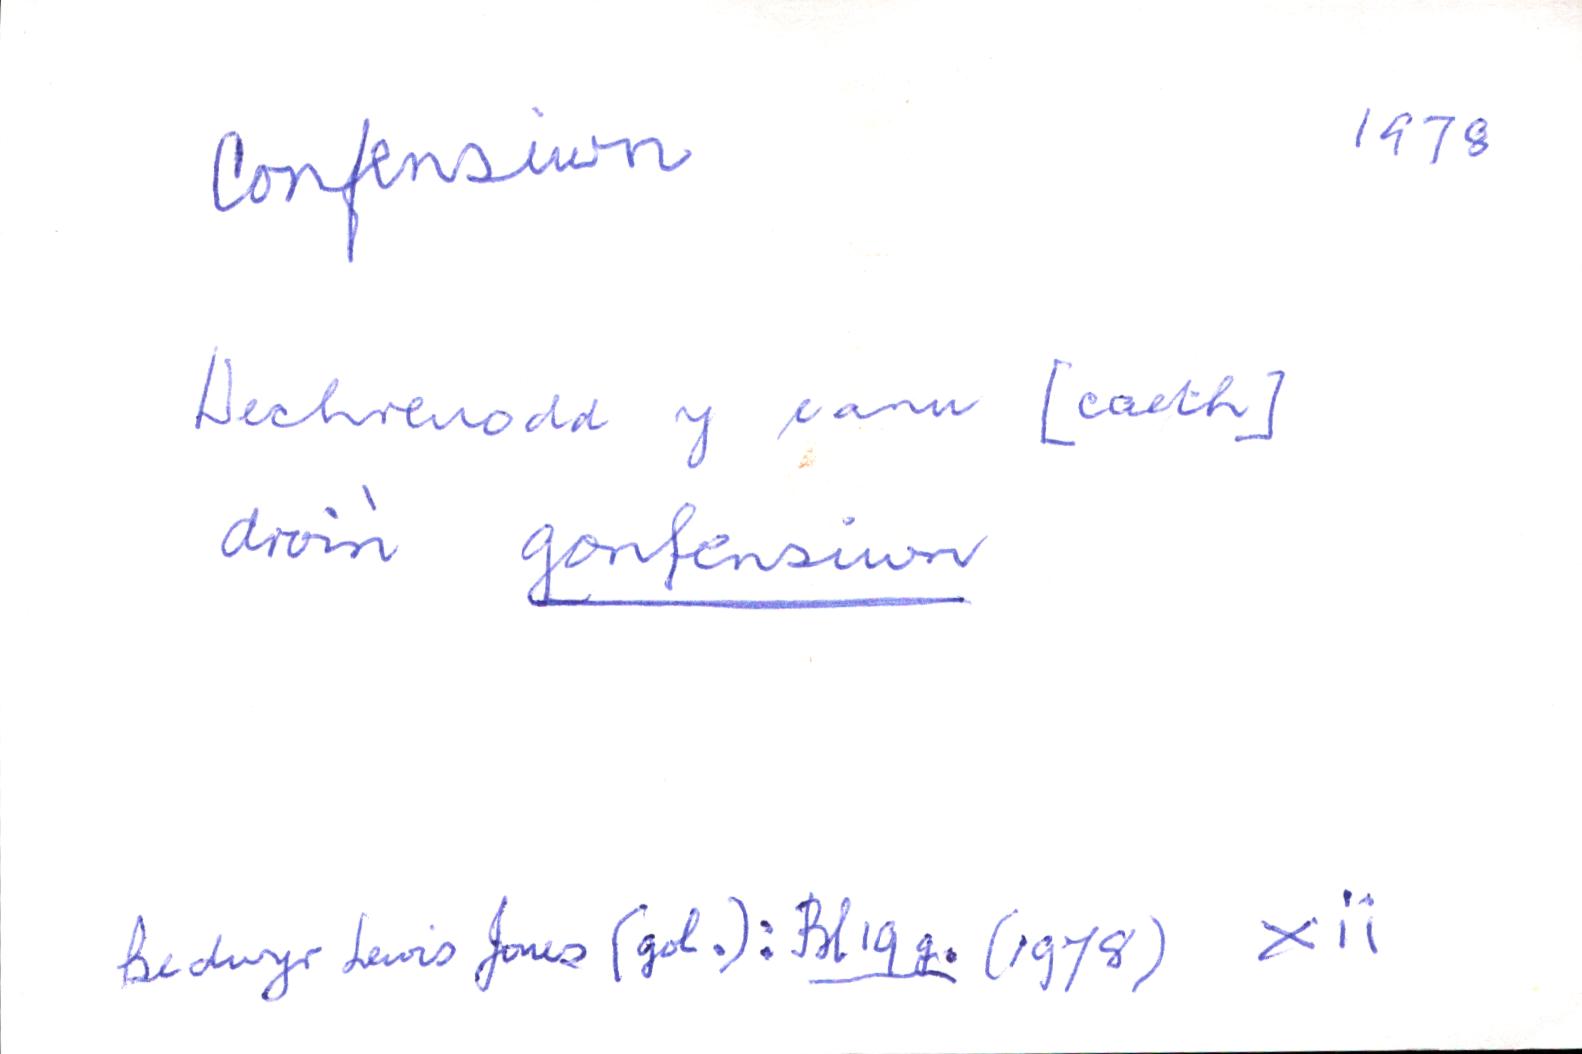 Confensiwn 1978
Dechreuodd y canu [caeth]
droi'n gonfensiwn
Bedwyr Lewis Jones (gol.): Bl 19 g. (1978) xii